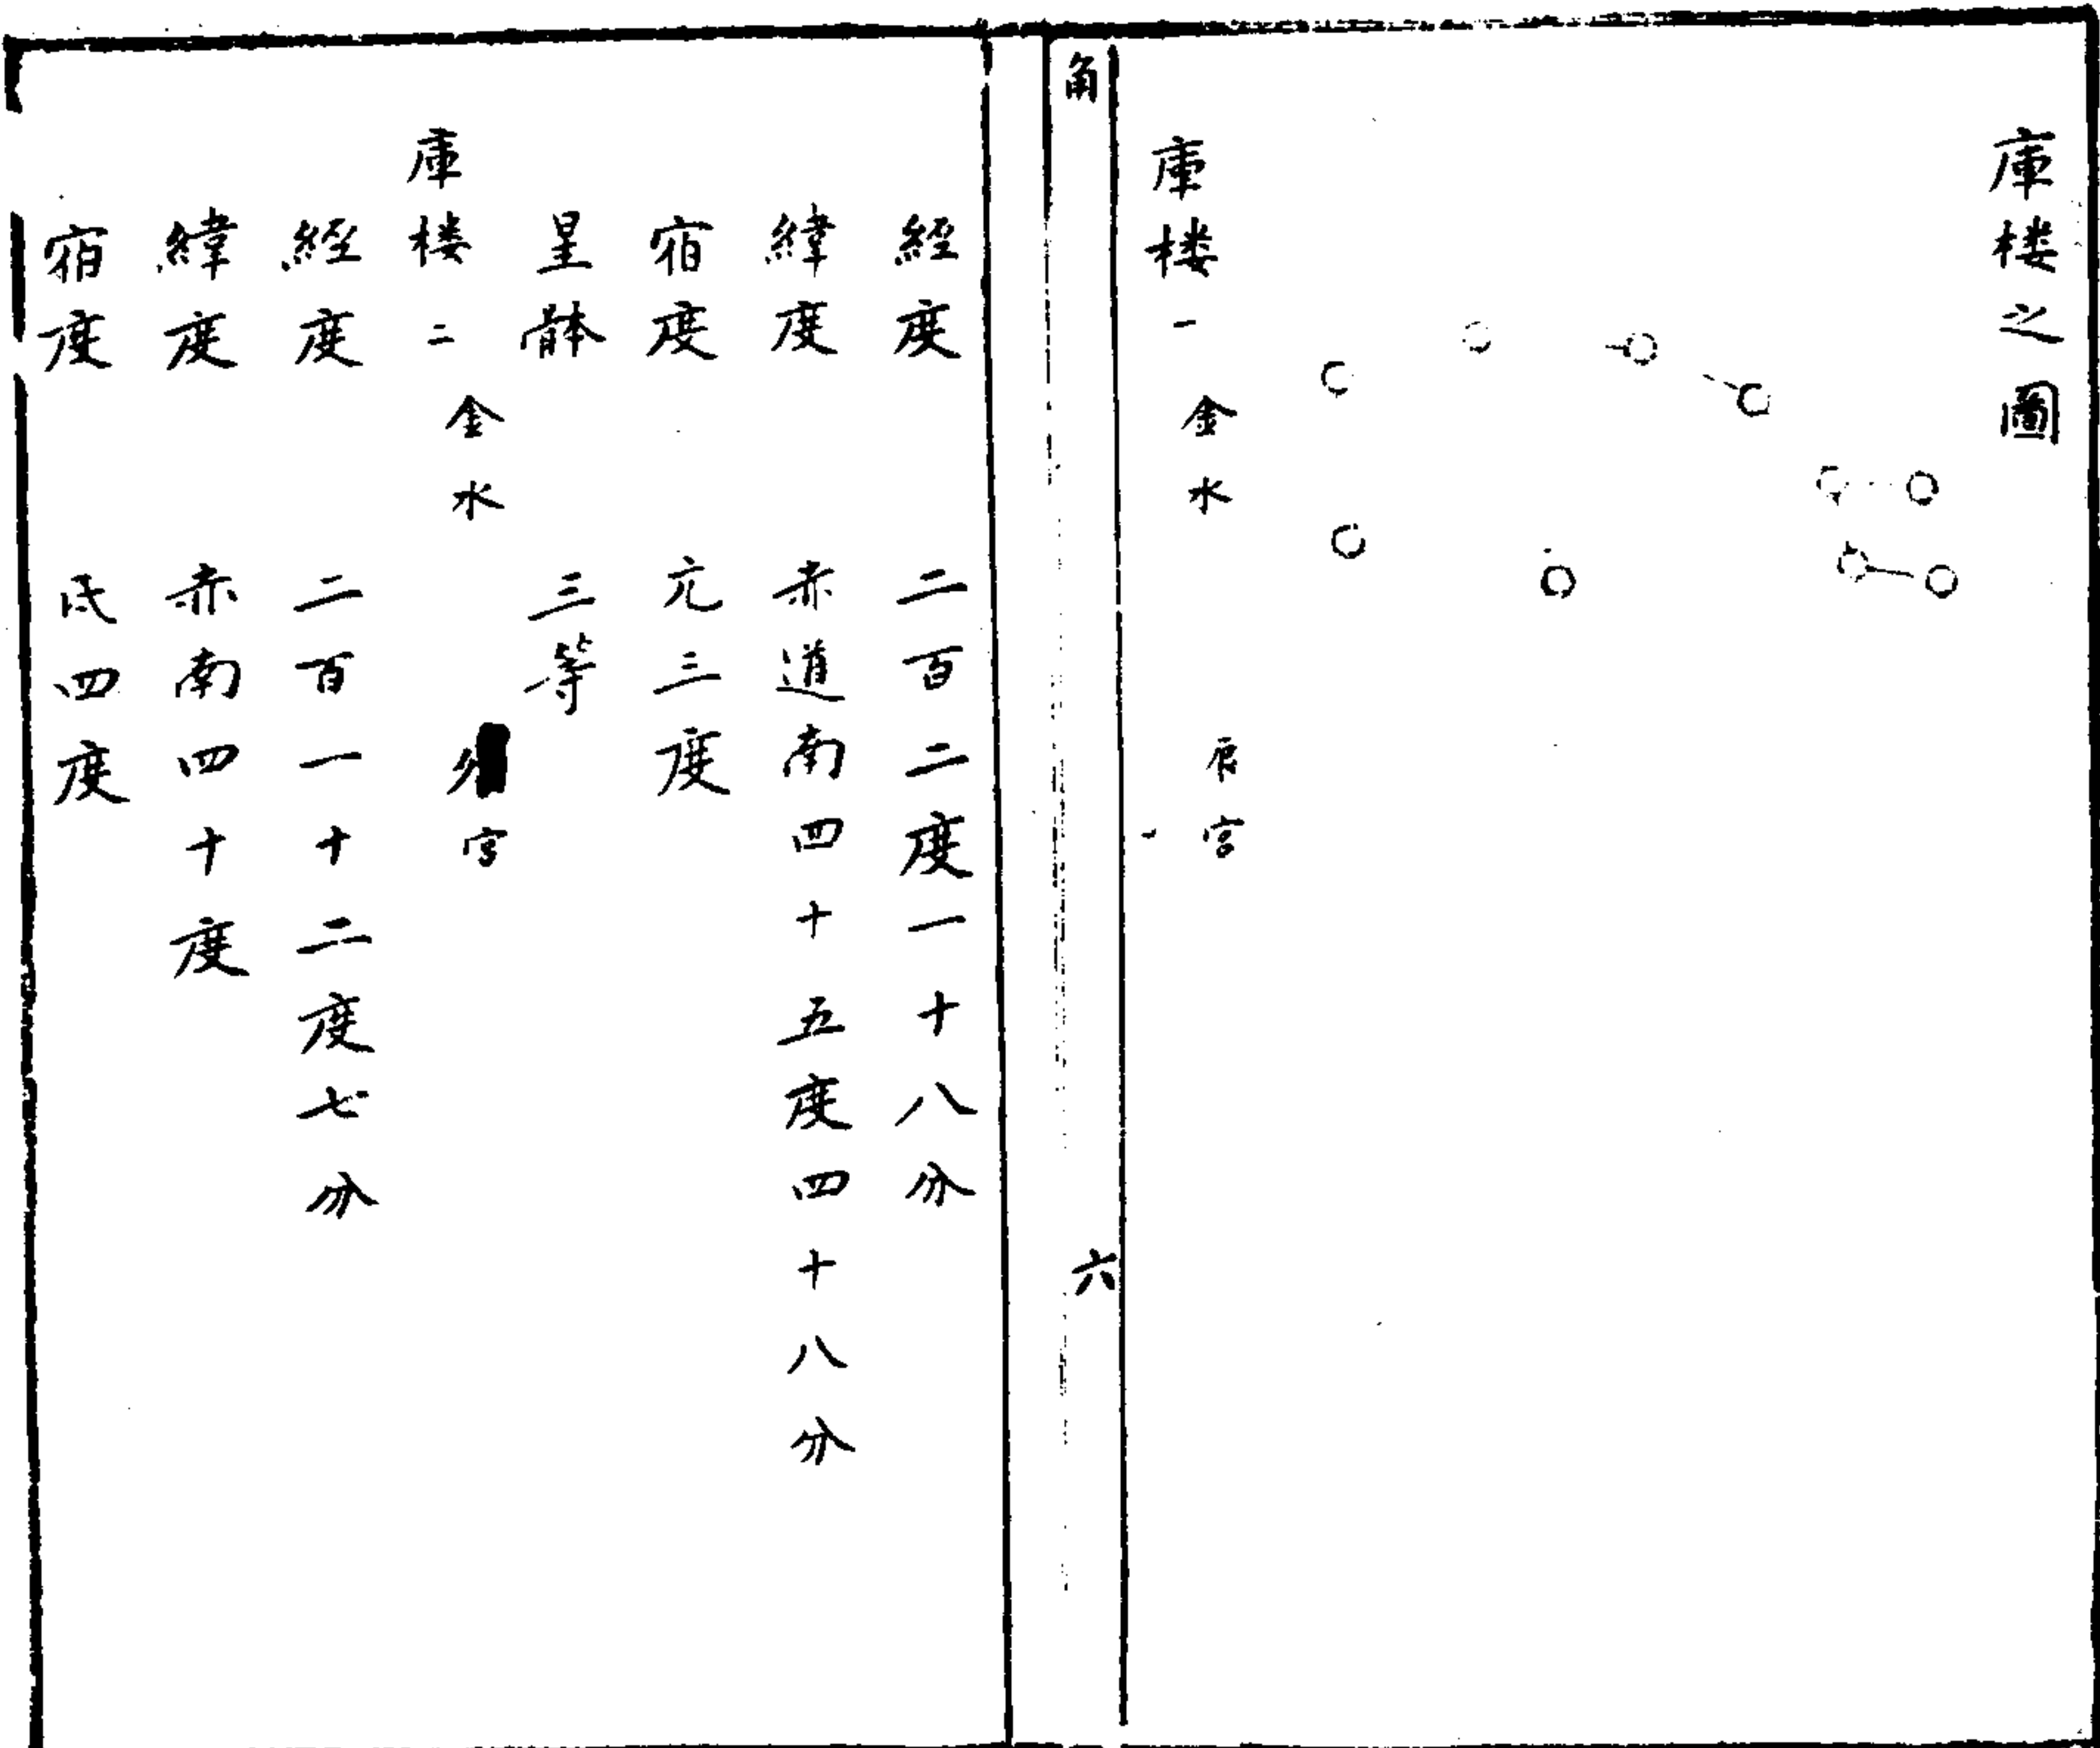 庫楼之圖
庫楼一 金水 辰宮
角 六
経度 二百二度一十八分
緯度 赤道南四十五度四十八分
宿度 亢三度
星体 三等
庫楼二 金水 宮
経度 二百一十二度七分
緯度 赤南四十度
宿度 氐四度